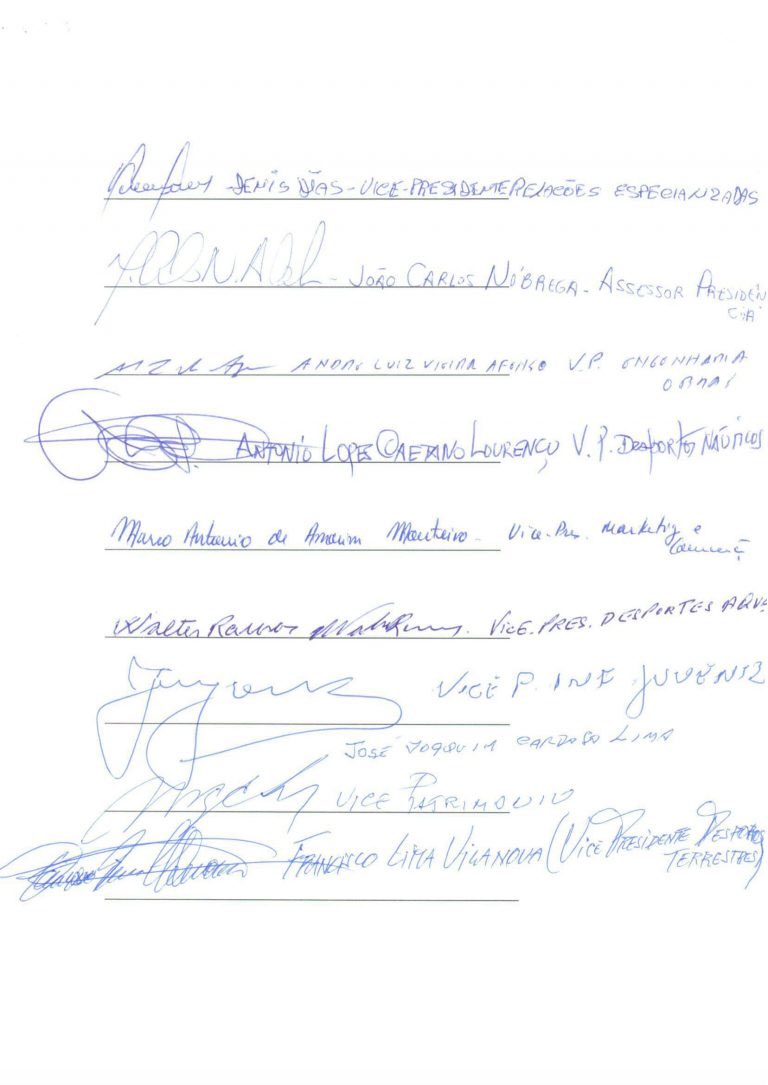 DENIS DIAS - VICE-PRESIDENTE RELAÇÕES ESPECIANIZADAS
- JOÃO CARLOS NÓBREGA - ASSESSOR PRESIDÊN
CIA
ANDRE LUIZ VIEIRA AFONSO V.P. ENGENHARIA
OBRAS
ANTONIO LOPES CAETANO LOURENÇO V.P. DESPORTOS NÁUTICOS
Marco Antonio de Amorim Monteiro - Vice-Pres. Marketing e
WALTER RAMOS VICE.PRES. DESPORTES AQU
VICE P. INF JUVÉNIL
JOSÉ JOAQUIM CARDOSO LIMA
VICE PATRIMONIO
FRANCISCO LIMA VILANOVA (VICE PRESIDENTE DESPORTOS
TERRESTRES)